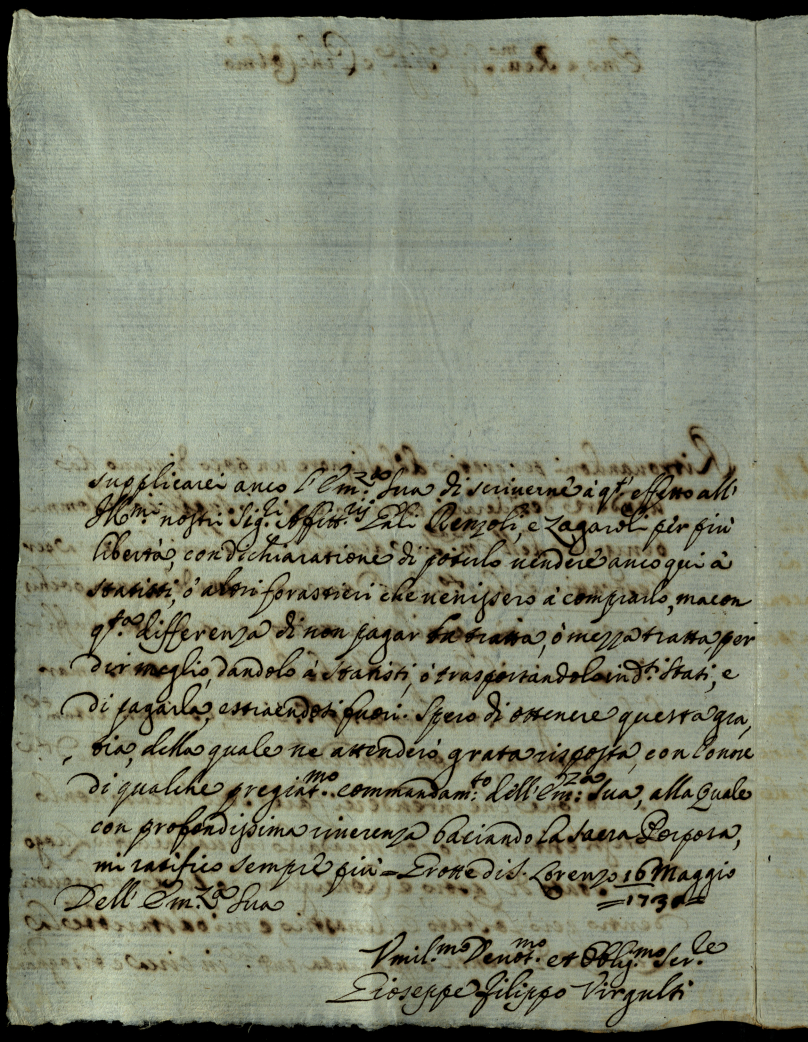 supplicarei anco l'Em.za Sua di scriverne à q.to effetto all'
Ill.mi nostri Sig.ri Affitt.rij Renzoli, e Zagaroli per più
libertà, con dichiaratione di poterlo vendere anco qui à
statisti, ò altri forastieri che venissero à comprarlo, ma con
q.ta differenza di non pagar tratta, ò mezza tratta, per
dir meglio, dandolo à statisti, ò trasportandolo in d.ti stati, e
di pagarla, estraendosi fuori. Spero di ottenere questa gra,
tia, della quale ne attenderò grata risposta, con l'onore
di qualche pregiat.mo commandam.to dell'Em.za Sua, alla quale
con profondissima riverenza baciando la sacra Porpora,
mi ratifico sempre più = Grotte di S. Lorenzo 16 Maggio
Dell'Em.za Sua
Umil.mo Devot.mo et Obblig.mo Ser.re
Gioseppe Filippo Virgulti